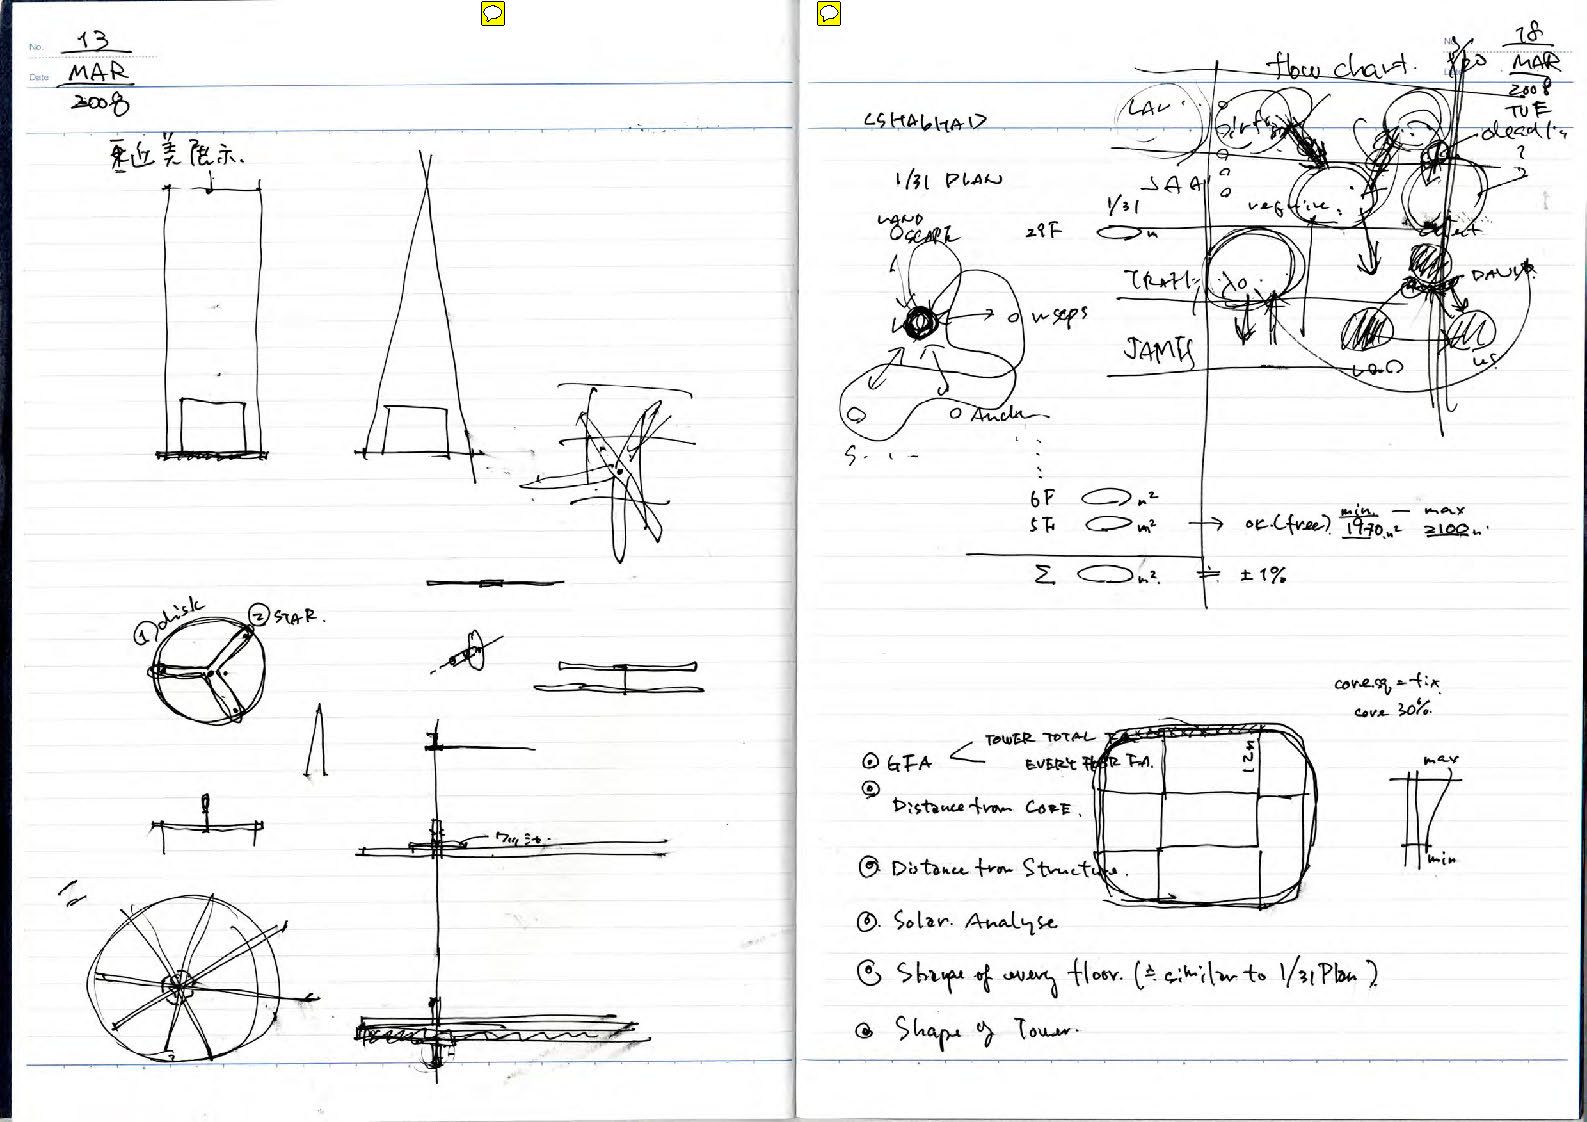 No. 13
Date MAR
2008
東近美展示.
① disk
② STAR.
ワッシャ.
18
MAR
2008
TUE
flow chart.
1/31 PLAN
LAND
SCAPE
1/31
29F
JAMES
6F m²
5F m² → OK.(free) min 1970m² — max 2100m²
Σ m² ≒ ±1%
core.sq = fix.
core 30%.
GFA
TOWER TOTAL F.A.
EVERY FLOOR F.A.
12M
max
min
Distance from CORE.
Distance from Structure.
Solar. Analyse
Shape of every floor. (≒ similar to 1/31 Plan)
Shape of Tower.